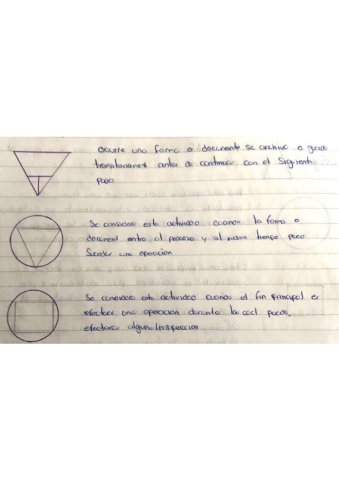 Ocurre una forma o documento se archiva o guarda
transitoriament antes de continuar con el Siguiente
paso
Se consideran esta actividad cuando la forma o
document entra al proceso y al mismo tiempo puede
una operacion
Se considera esta actividad cuando el fin principal es
efectuar una operacion durante la cual puede,
efectuar alguna Inspeccion